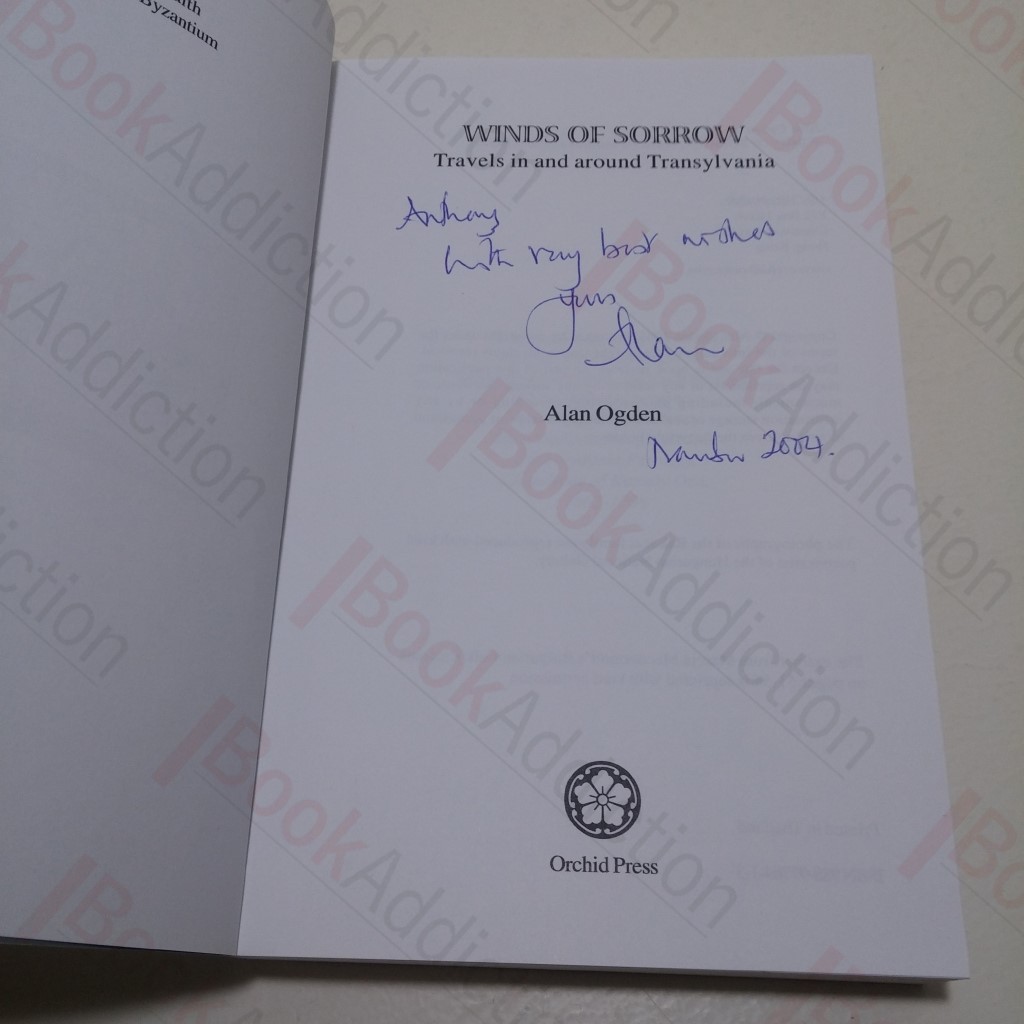 Byzantium
WINDS OF SORROW
Travels in and around Transylvania
Anthony
with very best wishes
yours
Alan
Alan Ogden
2004.
Orchid Press
BookAddiction
BookAddiction
BookAddiction
BookAddiction
BookAddiction